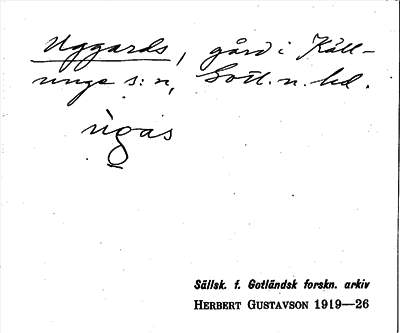 Uggards, gård i Käll-
unge s:n, Gotl. n. hd.
ùgas
Sällsk. f. Gotländsk forskn. arkiv
HERBERT GUSTAVSON 1919—26